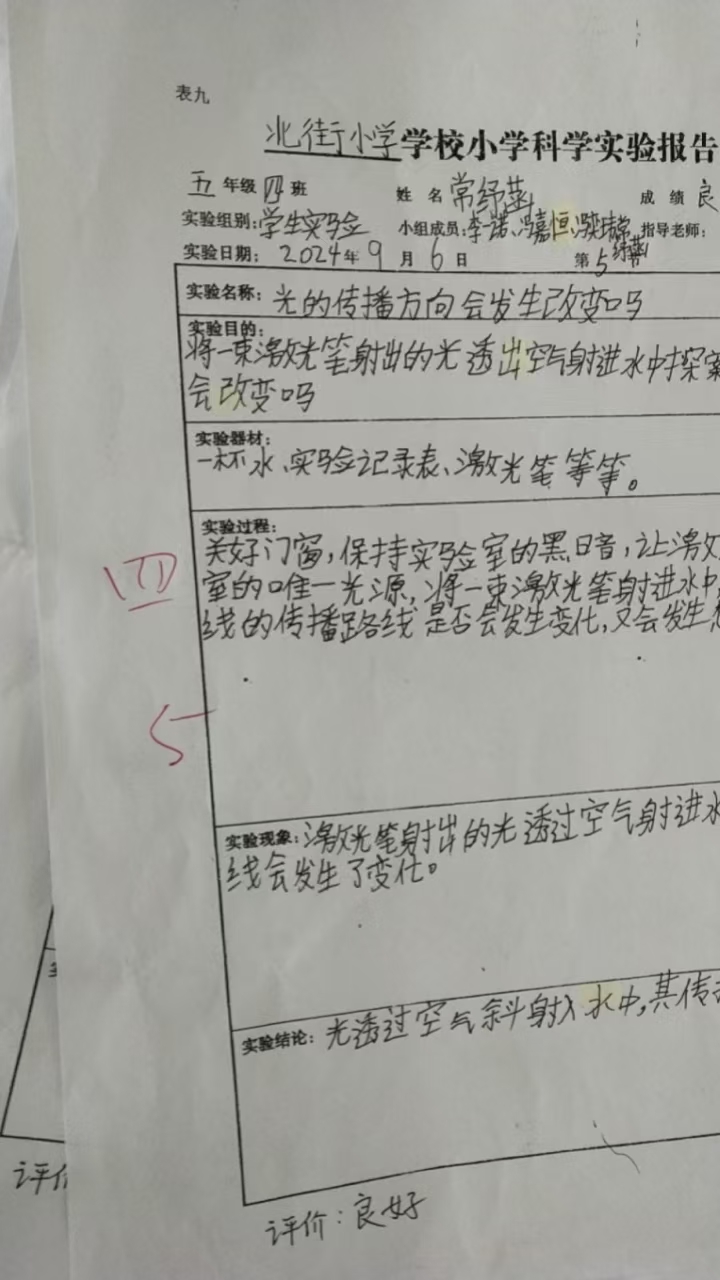 表九
北街小学学校小学科学实验报告
五年级四班 姓名 常纾菡 成绩 良
实验组别:学生实验 小组成员:李一诺、冯嘉恒、 指导老师:
实验日期: 2024年9月6日 第5节
实验名称: 光的传播方向会发生改变吗
实验目的:
将一束激光笔射出的光透出空气射进水中探索
会改变吗
实验器材:
一杯水、实验记录表、激光笔等等。
实验过程:
关好门窗,保持实验室的黑暗,让激
四
室的唯一光源,将一束激光笔身进水中,
线的传播路线是否会发生变化,又会发生
5
实验现象: 激光笔射出的光透过空气身进水
线会发生了变化。
实验结论: 光透过空气斜射入水中,其传
评价:良好
评价